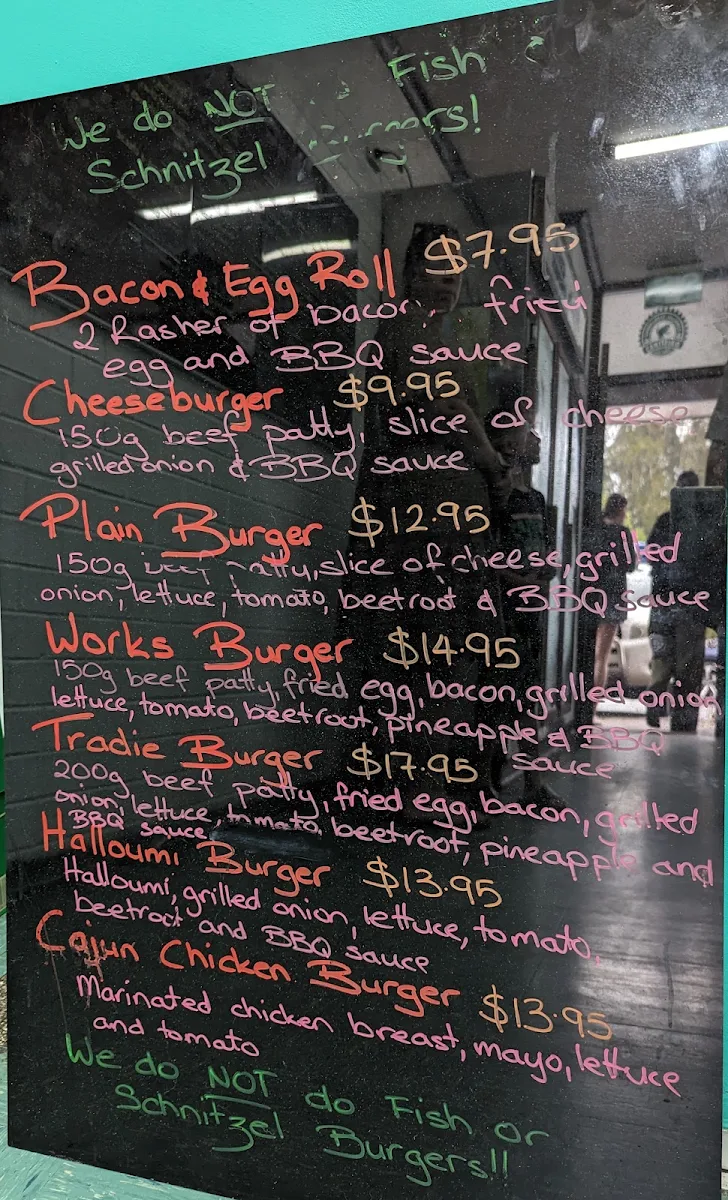 We do NOT Fish
Schnitzel
Bacon & Egg Roll $7.95
2 Rasher of bacon, fried
egg and BBQ sauce
Cheeseburger $9.95
150g beef patty, slice of cheese
grilled onion & BBQ sauce
Plain Burger $12.95
150g beef patty, slice of cheese, grilled
onion, lettuce, tomato, beetroot & BBQ sauce
Works Burger $14.95
150g beef patty, fried egg, bacon, grilled onion
lettuce, tomato, beetroot, pineapple & BBQ
sauce
Tradie Burger $17.95
200g beef patty, fried egg, bacon, grilled
onion, lettuce, tomato, beetroot, pineapple and
BBQ sauce
Halloumi Burger $13.95
Halloumi, grilled onion, lettuce, tomato,
beetroot and BBQ sauce
Cajun Chicken Burger $13.95
Marinated chicken breast, mayo, lettuce
and tomato
We do NOT do Fish or
Schnitzel Burgers!!